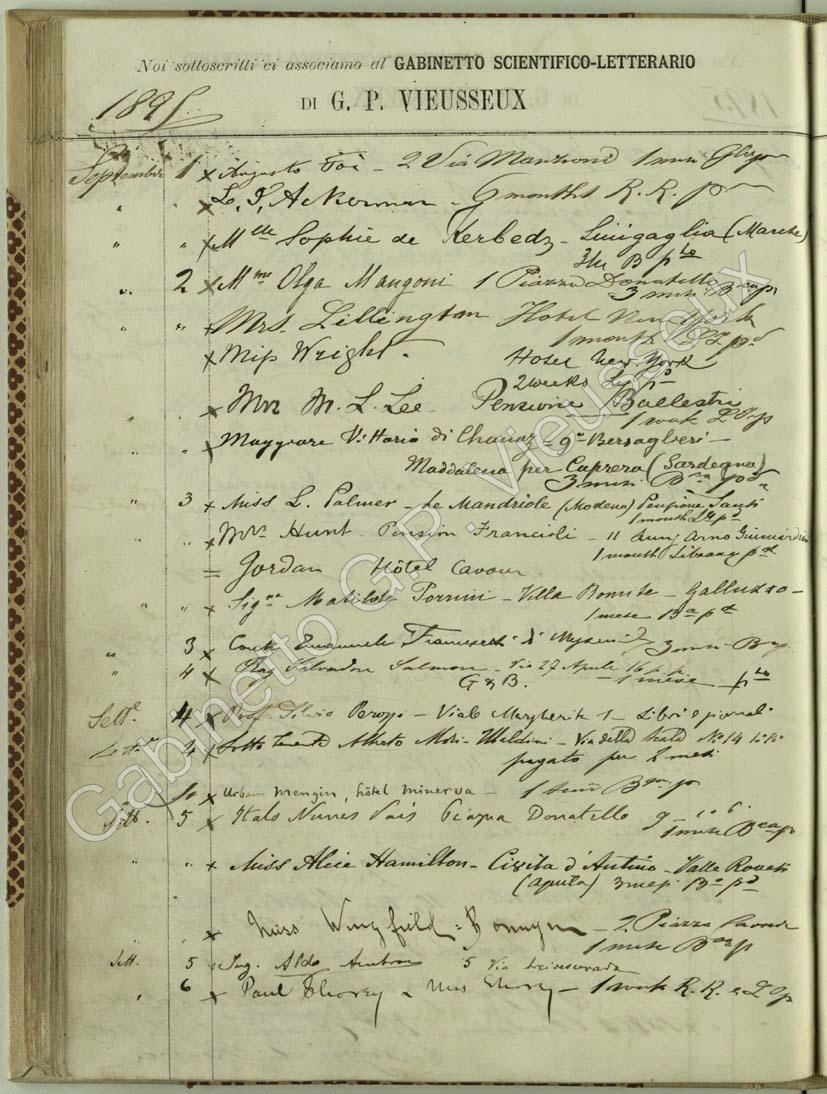 Noi sottoscritti ci associamo al GABINETTO SCIENTIFICO-LETTERARIO
DI G. P. VIEUSSEUX
1895
Septembre 1 x Augusto Foà - 2 Via Manzoni 1 mese
" " x L. J. Ackerman - 6 months R. R. p
" " x Mlle Sophie de Kerbedz - Sinigaglia (Marche)
3m B pto
" 2 x Mme Olga Mangoni 1 Piazza Donatello
3 mesi Bca p
" " x Mrs. Lillington Hotel New York
1 month pd
x Miss Wright. Hotel New York
2 weeks pd
x Mrs M. L. Lee Pensione Ballestri
1 week p
" " x Maggiore Vittorio di - 9° Bersaglieri -
Maddalena per Caprera (Sardegna)
3 mesi
" 3 x Miss L. Palmer - de Mandriole (Modena) Pensione Santi
1 month pd
" " x Mrs Hunt - Pension Francioli - 11 Lung Arno Guicciardini
1 month Library pd
= Jordan Hôtel Cavour
" " x Sigra Matilde Porrini - Villa Bonite - Galluzzo -
1 mese Ba pd
" 3 x Conte Emanuele 3 mesi B
" 4 x Rag Salvadore Salmon - Via 27 Aprile 16 p.p.
G & B. - 1 mese pto
Sette 4 x Prof. Silvio Perozzi - Viale Margherita 1 - Libri e giornali
Sette 4 x Sotto tenente Alberto - Via della Scala No 14
pagato per 2 mesi
x Urbain Mengin, hôtel Minerva - 1 p
Sett. 5 x Italo Nunes Vais Piazza Donatello 9
1 mese Bca p
" " x Miss Alice Hamilton - Civita d'Antino - Valle Roveto
(Aquila) 3 mesi Ba pd
" x Miss Wingfield = - 2. Piazza Cavour
1 mese Bca p
Sett. 5 x Ing. Aldo 5 Via
" 6 x Paul Thorey & Mrs Thorey - 1 week R. R. e p
Gabinetto G.P. Vieusseux